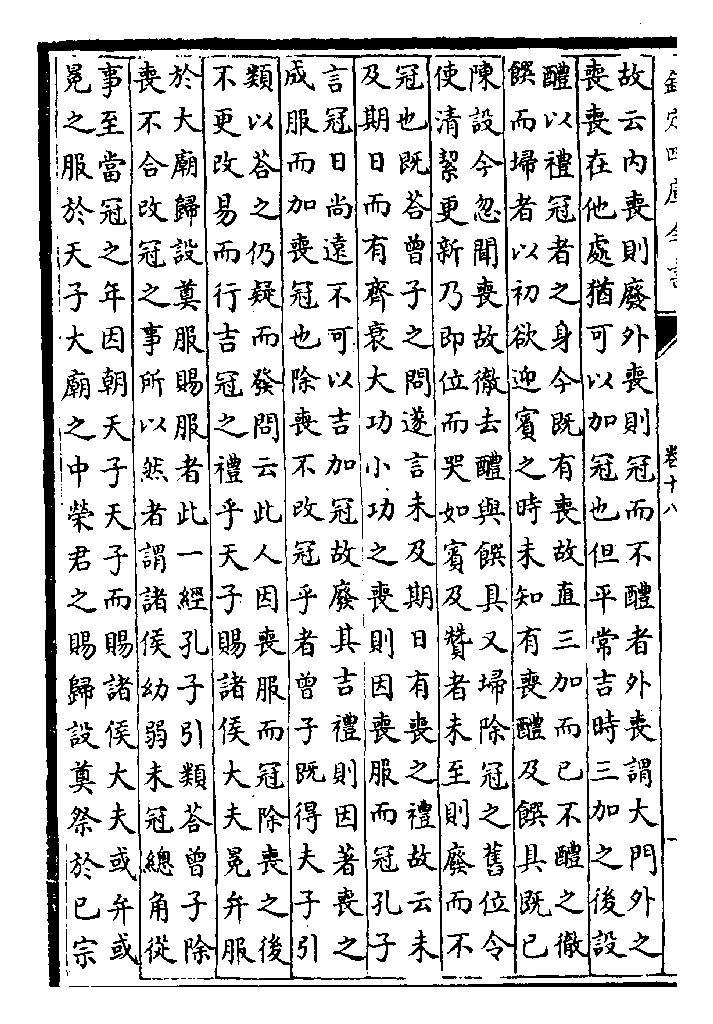 欽定四庫全書
卷十八
故云內喪則廢外喪則冠而不醴者外喪謂大門外之
喪喪在他處猶可以加冠也但平常吉時三加之後設
醴以禮冠者之身今既有喪故直三加而已不醴之徹
饌而埽者以初欲迎賓之時未知有喪醴及饌具既已
陳設今忽聞喪故徹去醴與饌具又埽除冠之舊位令
使清絜更新乃即位而哭如賓及贊者未至則廢而不
冠也既荅曾子之問遂言未及期日有喪之禮故云未
及期日而有齊衰大功小功之喪則因喪服而冠孔子
言冠日尚遠不可以吉加冠故廢其吉禮則因著喪之
成服而加喪冠也除喪不改冠乎者曾子既得夫子引
類以荅之仍疑而發問云此人因喪服而冠除喪之後
不更改易而行吉冠之禮乎天子賜諸侯大夫冕弁服
於大廟歸設奠服賜服者此一經孔子引類荅曾子除
喪不合改冠之事所以然者謂諸侯幼弱未冠總角從
事至當冠之年因朝天子天子而賜諸侯大夫或弁或
冕之服於天子大廟之中榮君之賜歸設奠祭於已宗